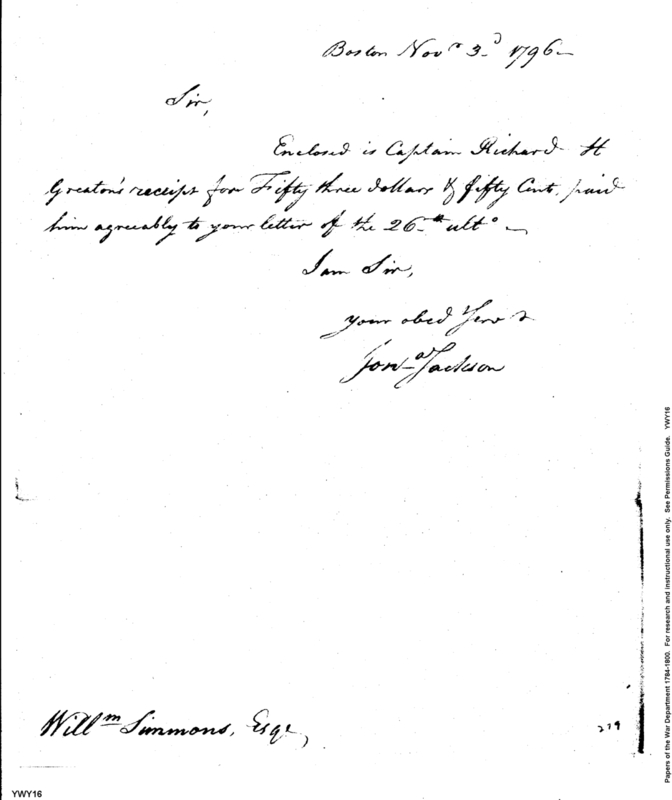 Boston Novr 3d 1796
Sir,
Enclosed is Captain Richard H
Greaton's receipt for Fifty three dollars & fifty Cent, paid
him agreeably to your letter of the 26th ulto
I am Sir,
your obed Servt
Jona Jackson
Willm Simmons, Esqr,
279
YWY16
Papers of the War Department 1784-1800. For research and instructional use only. See Permissions Guide. YWY16